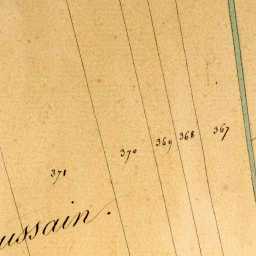 371 370 369 368 367
ussain.